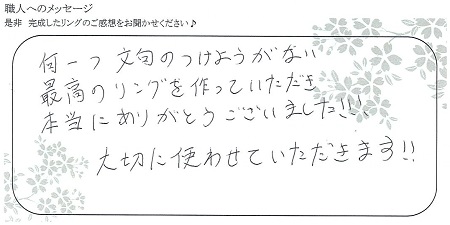 職人へのメッセージ
是非 完成したリングのご感想をお聞かせください♪
何一つ文句のつけようがない
最高のリングを作っていただき
本当にありがとうございました!!!
大切に使わせていただきます!!